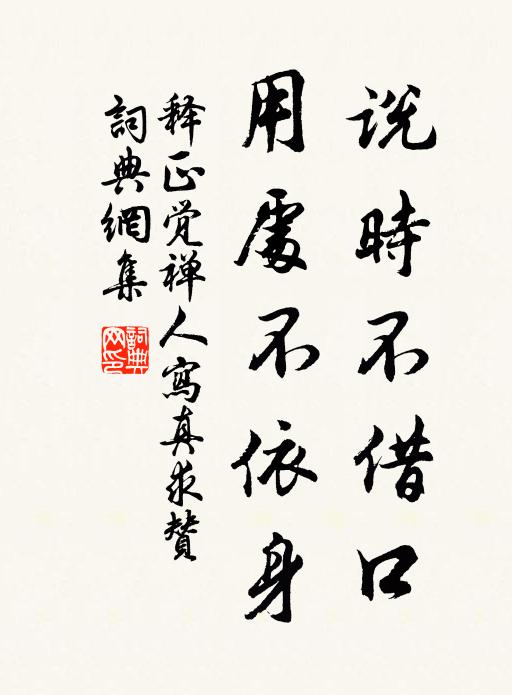 说時不借口
用處不依身
释正觉禅人寫真求贊
詞典網集
詞典網印